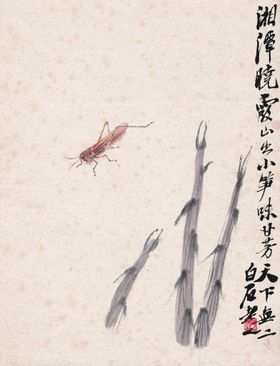 湘潭曉霞山出小笋味甘芳
天下無二
白石老